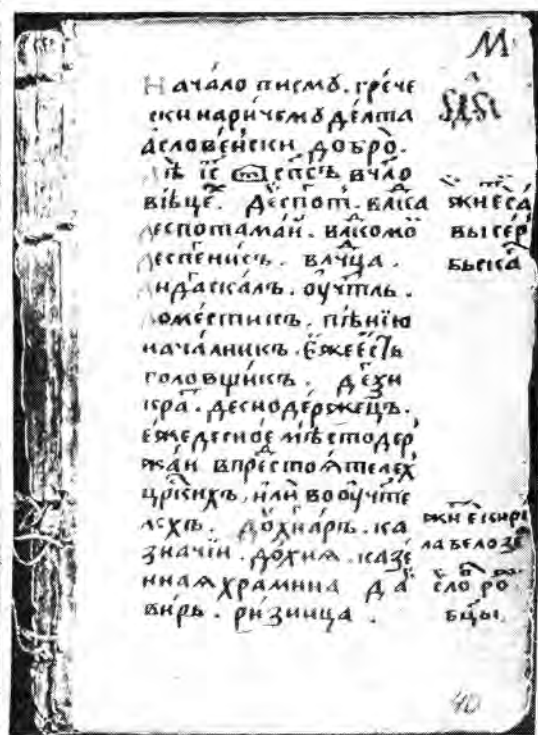 М
Нача́ло писмꙋ. гре́че
ски нари́чемꙋ де́лта
а҆слове́нски добро̀.
спⷭ҇съ вчл҃о
вѣ́цеⷯ. Де́спот. влⷣка
деспотама́й. влⷣкомо́й
деспе́нисъ. влⷣчца.
дидаска́лъ. ᲂу҆чт҃ль.
доме́стикъ. пѣ́нїю
нача́лникъ. є҆́же є҆́сть
головщи́къ. де́ѯи
кра̀. деснодє́ржецъ.
є҆́же десно́е мѣ́стодер
жа́й впрестоѧ́телеⷯ
црⷭ҇кихъ, и҆лѝ во ᲂу҆чт҃е
лехъ. до́хїарь. ка
значі́и. до́хиѧ. казе́
ннаѧ храмина да
виръ. ри́зница.
жн҃еса́
вы се́р
бьска́
жн҃є кири́
ла бело́зе
сло ро
бцы.
40